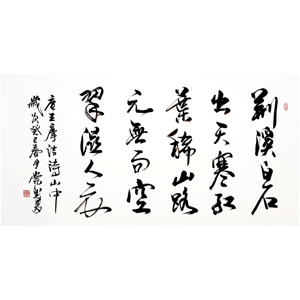 荆溪白石
出天寒红
葉稀山路
元無雨空
翠湿人衣
唐王摩诘诗山中
歲次癸巳春月